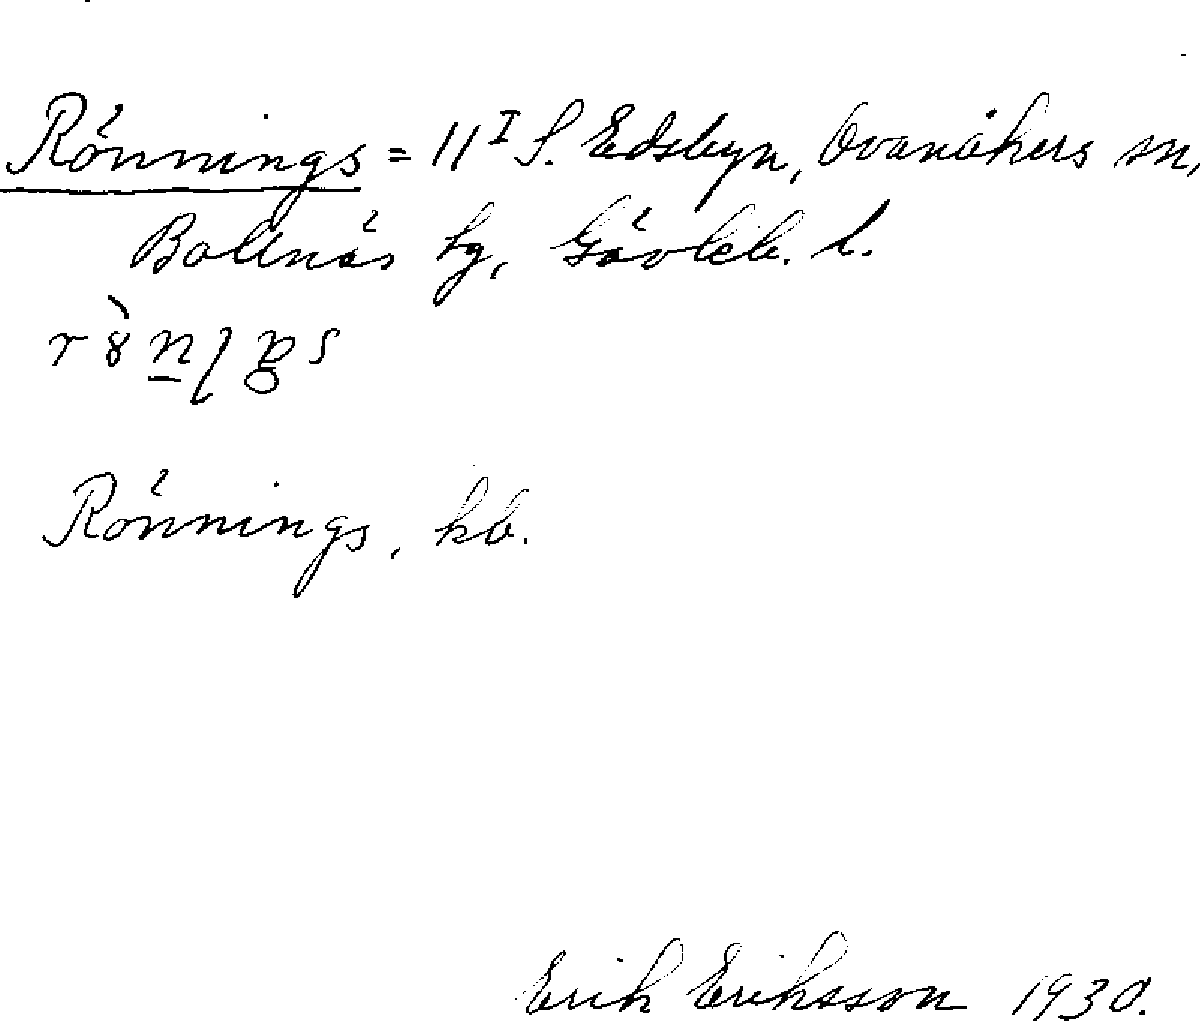 Rönnings = 11 I S. Edsbyn, Ovanåkers sn,
Bollnäs tg, Gävleb. l.
Rönnings, kb.
Erik Eriksson 1930.